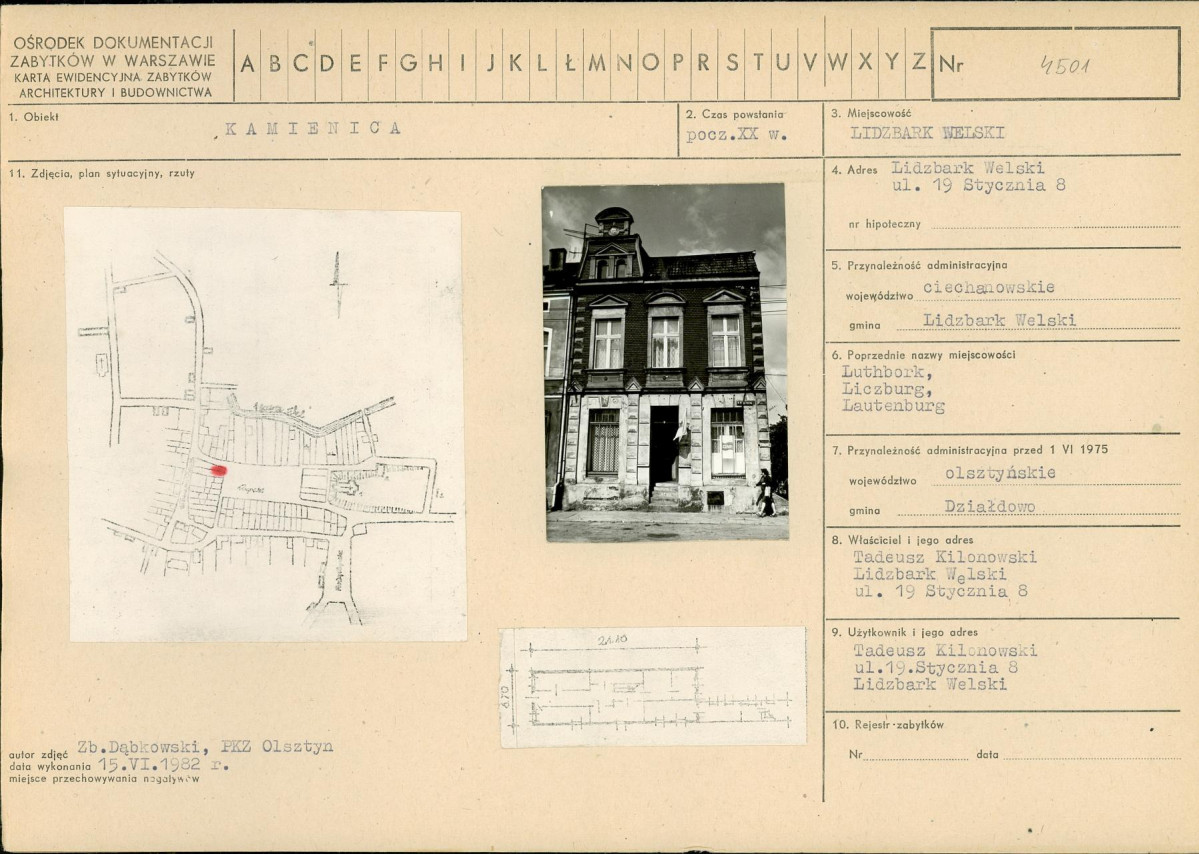 OŚRODEK DOKUMENTACJI
ZABYTKÓW W WARSZAWIE
KARTA EWIDENCYJNA ZABYTKÓW
ARCHITEKTURY I BUDOWNICTWA
A B C D E F G H I J K L Ł M N O P R S T U V W X Y Z
Nr 4501
1. Obiekt
KAMIENICA
2. Czas powstania
pocz.XX w.
3. Miejscowość
LIDZBARK WELSKI
11. Zdjęcia, plan sytuacyjny, rzuty
4. Adres Lidzbark Welski
ul. 19 Stycznia 8
nr hipoteczny
5. Przynależność administracyjna
województwo ciechanowskie
gmina Lidzbark Welski
6. Poprzednie nazwy miejscowości
Luthbork,
Liczburg,
Lautenburg
7. Przynależność administracyjna przed 1 VI 1975
województwo olsztyńskie
gmina Działdowo
8. Właściciel i jego adres
Tadeusz Kilonowski
Lidzbark Welski
ul. 19 Stycznia 8
9. Użytkownik i jego adres
Tadeusz Kilonowski
ul.19.Stycznia 8
Lidzbark Welski
10. Rejestr zabytków
Nr data
21.10
8.70
autor zdjęć Zb.Dąbkowski, PKZ Olsztyn
data wykonania 15.VI.1982 r.
miejsce przechowywania negatywów